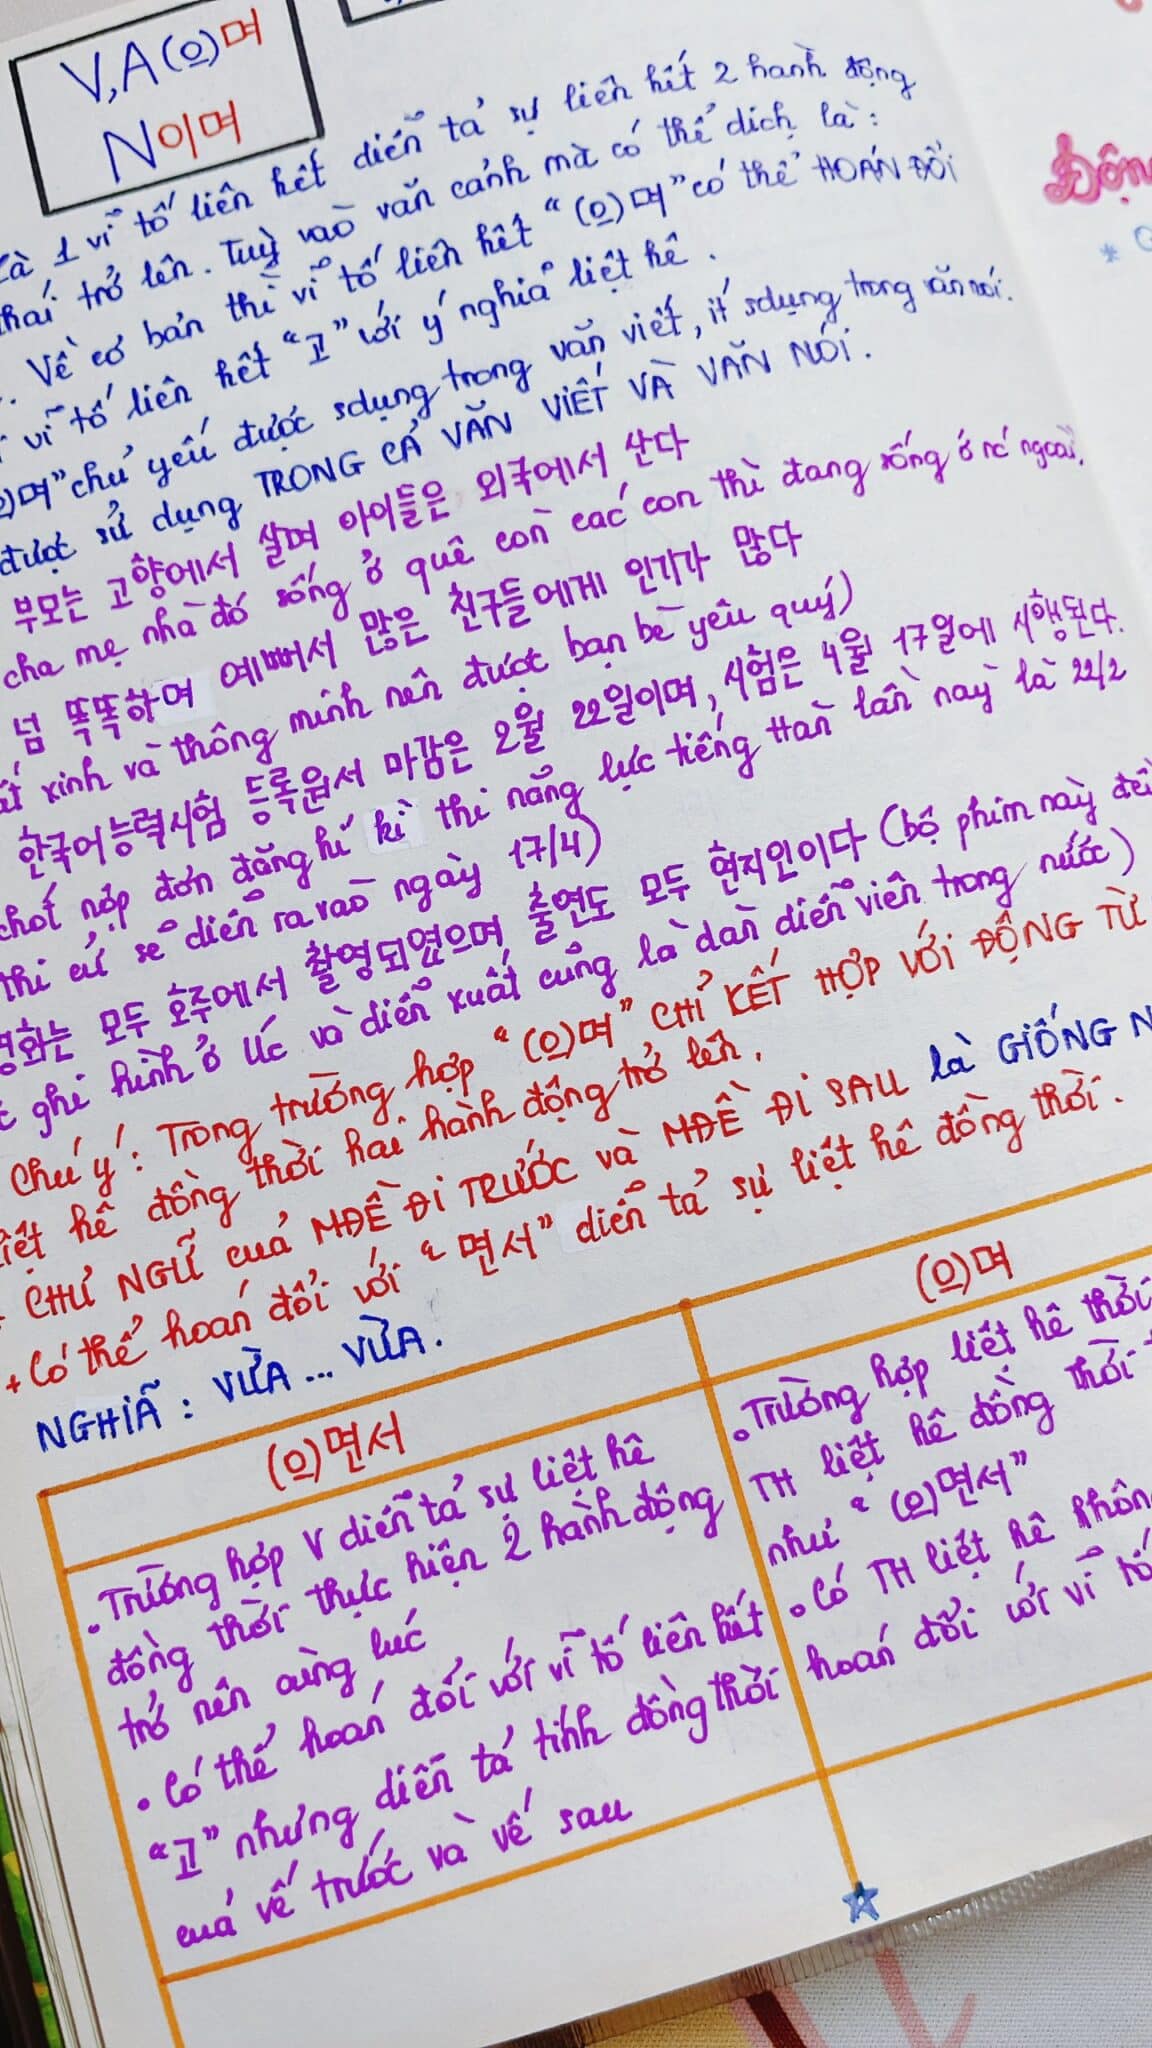 V,A(으)며
N이며
Là 1 vĩ tố liên kết diễn tả sự liên kết 2 hành động
trở lên. Tuỳ vào văn cảnh mà có thể dịch là:
Về cơ bản thì vĩ tố liên kết "(으)며" có thể HOÁN ĐỔI
vĩ tố liên kết "고" với ý nghĩa liệt kê.
"(으)며" chủ yếu được sdụng trong văn viết, ít sdụng trong văn nói.
được sử dụng TRONG CẢ VĂN VIẾT VÀ VĂN NÓI.
부모는 고향에서 살며 아이들은 외국에서 산다
cha mẹ nhà đó sống ở quê còn các con thì đang sống ở nc ngoài.
넘 똑똑하며 예뻐서 많은 친구들에게 인기가 많다
xinh và thông minh nên được bạn bè yêu quý)
한국어능력시험 등록원서 마감은 2월 22일이며, 시험은 4월 17일에 시행된다.
chót nộp đơn đăng kí kì thi năng lực tiếng Hàn lần này là 22/2
thi cử sẽ diễn ra vào ngày 17/4)
영화는 모두 호주에서 촬영되였으며 출연도 모두 현지인이다 (bộ phim này
ghi hình ở Úc và diễn xuất cũng là dàn diễn viên trong nước)
Chú ý: Trong trường hợp "(으)며" CHỈ KẾT HỢP VỚI ĐỘNG TỪ
liệt kê đồng thời hai hành động trở lên.
CHỦ NGỮ của MĐỀ ĐI TRƯỚC và MĐỀ ĐI SAU là GIỐNG
+ Có thể hoán đổi với "면서" diễn tả sự liệt kê đồng thời.
NGHĨA: VỪA ... VỪA.
(으)면서
• Trường hợp V diễn tả sự liệt kê
đồng thời thực hiện 2 hành động
trở nên cùng lúc
• Có thể hoán đổi với vĩ tố liên kết
"고" nhưng diễn tả tính đồng thời
của vế trước và vế sau
(으)며
• Trường hợp liệt kê thời
TH liệt kê đồng thời
như "(으)면서"
• Có TH liệt kê
hoán đổi với vĩ tố